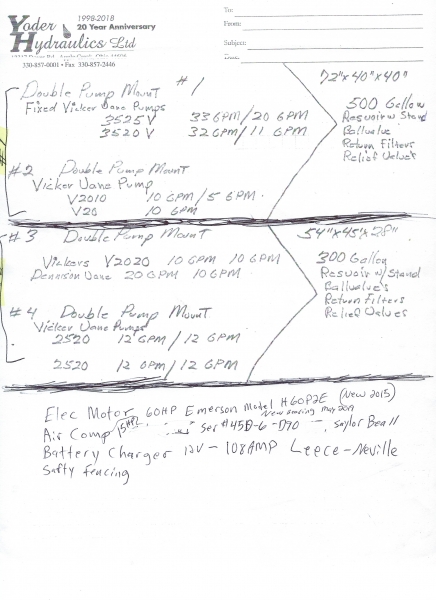 1998-2018
Yoder
20 Year Anniversary
Hydraulics Ltd
330-857-0001 • Fax 330-857-2446
To:
From:
Subject:
Date:
Double Pump Mount #1
Fixed Vicker Vane Pumps
3525 V 33 GPM/20 GPM
3520 V 32 GPM/11 GPM
72"x40"x40"
500 Gallow
Resuvoir w Stand
Ballvalve
Return Filters
Relief Velves
#2 Double Pump Mount
Vicker Vane Pump
V2010 10 GPM/5 GPM
V20 10 GPM
#3 Double Pump Mount
Vickers V2020 10 GPM 10 GPM
Dennison Vane 20 GPM 10 GPM
54"x45"x28"
300 Gallon
Resuvoir w/Stand
Ballvalve's
Return Filters
Relief Valves
#4 Double Pump Mount
Vicker Vane Pumps
2520 12 GPM/12 GPM
2520 12 GPM/12 GPM
Elec Motor 60HP Emerson Model H60P2E (New 2015)
New Bearing May 2019
Air Comp 15HP Ser #45D-6-D90 -, Saylor Beall
Battery Charger 12V - 108AMP Leece-Neville
Safty Fencing